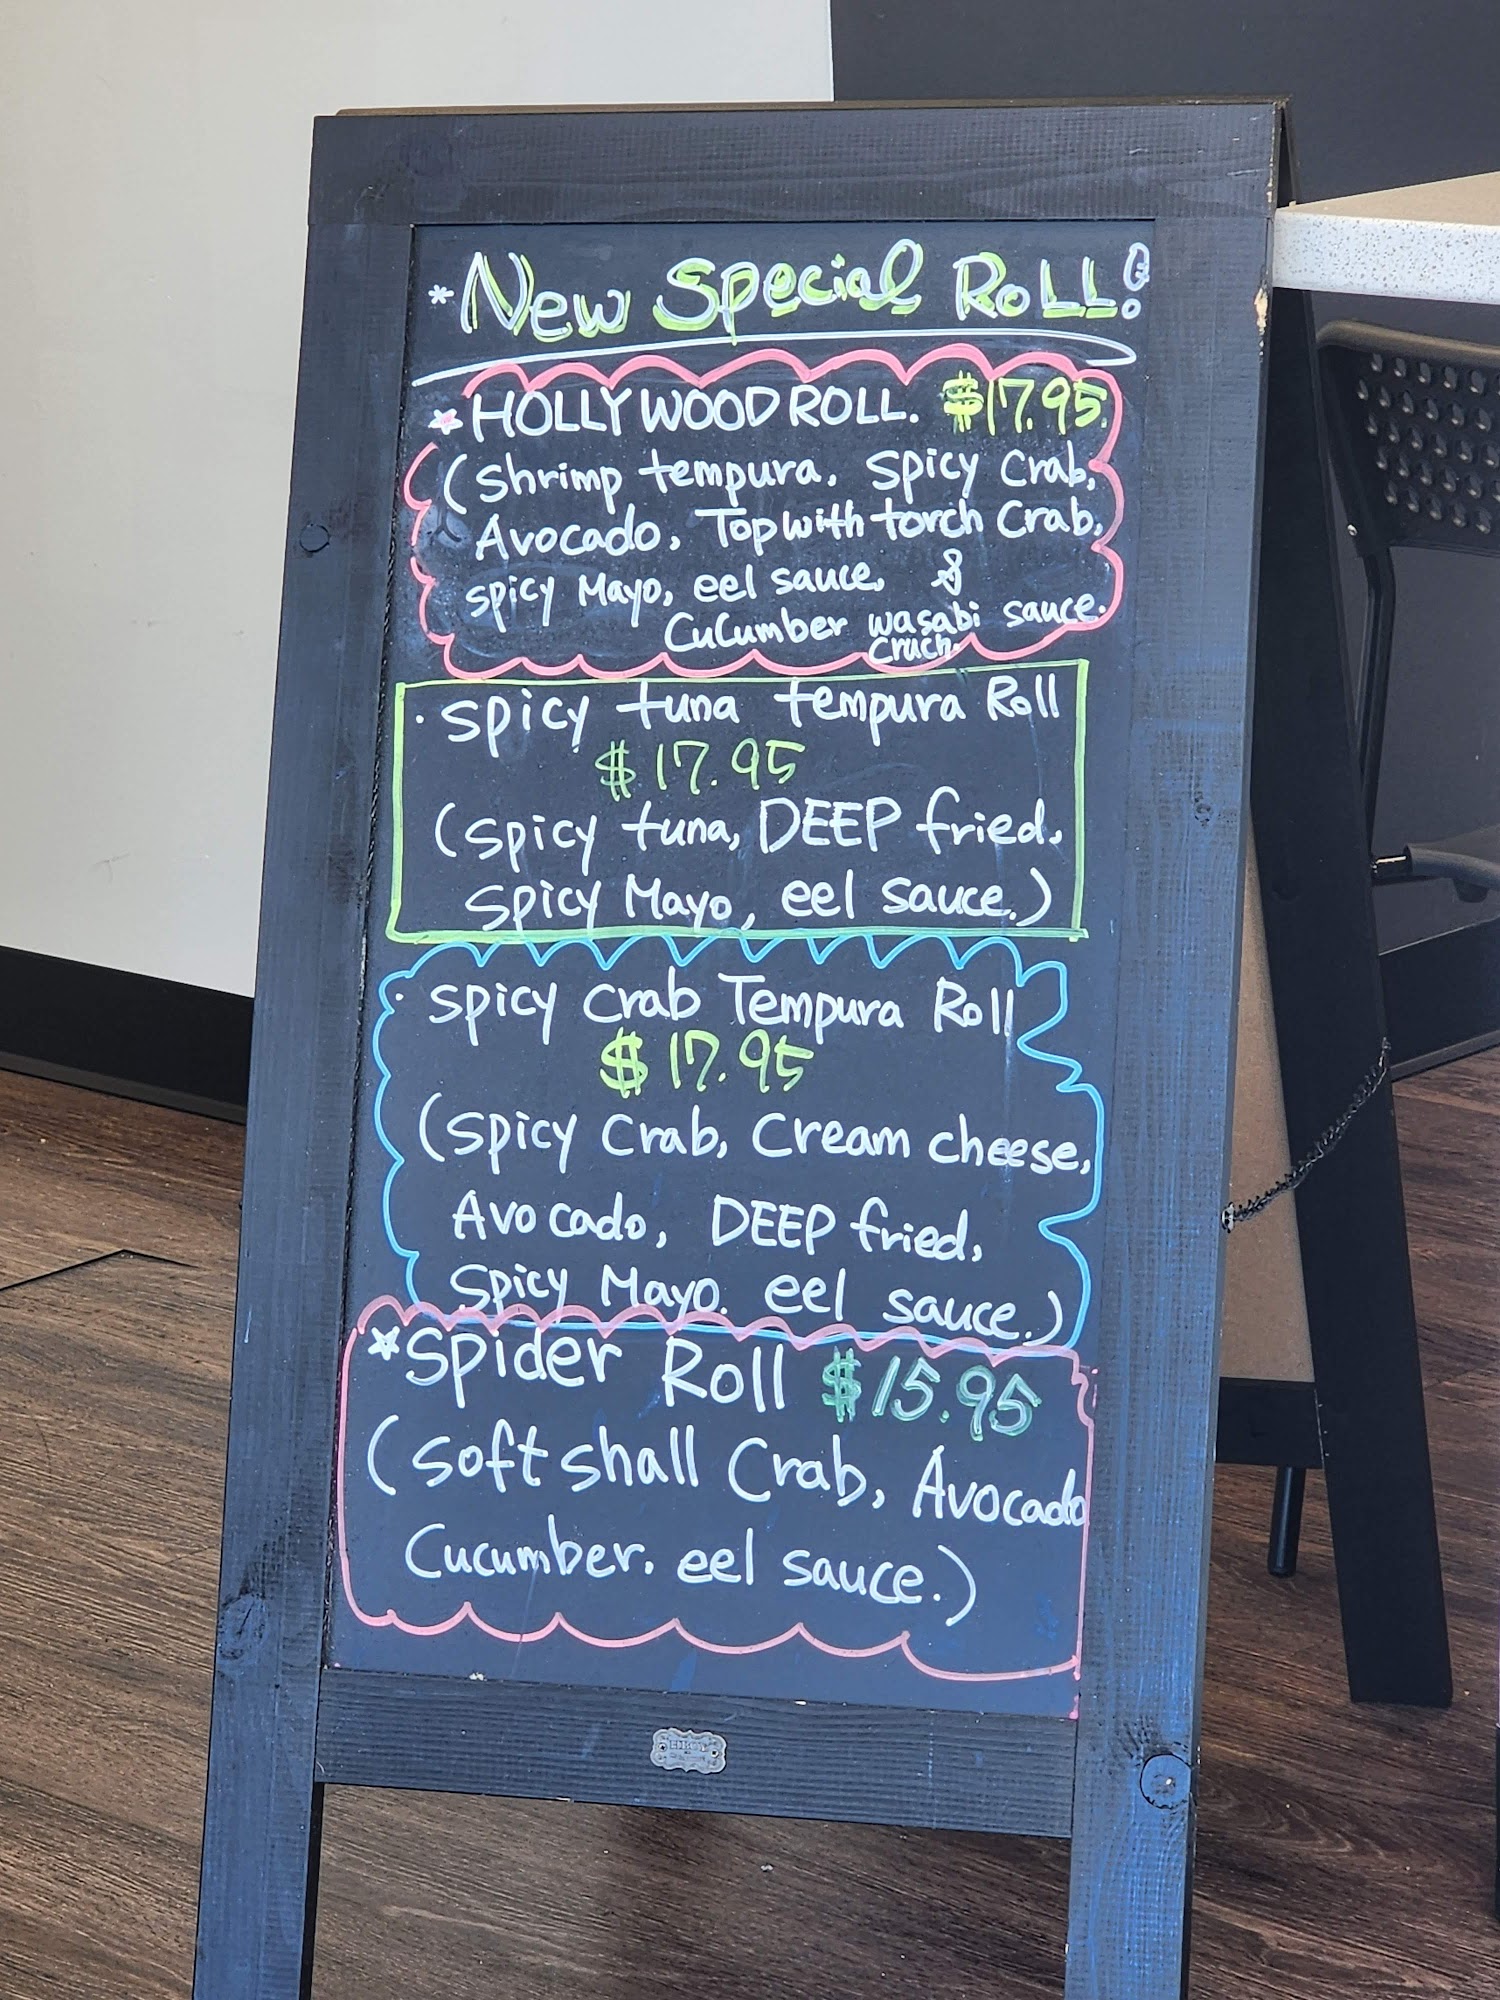 * New Special Roll!
☆ HOLLYWOOD ROLL. $17.95
(Shrimp tempura. Spicy Crab,
Avocado, Top with torch Crab,
spicy Mayo, eel sauce, &
Cucumber wasabi sauce.
Cruch.
· Spicy tuna tempura Roll
$17.95
(Spicy tuna, DEEP fried,
Spicy Mayo, eel sauce.)
· Spicy Crab Tempura Roll
$17.95
(Spicy Crab, Cream cheese,
Avocado, DEEP fried,
Spicy Mayo. eel sauce.)
☆ Spider Roll $15.95
(Soft shall Crab, Avocado
Cucumber. eel sauce.)